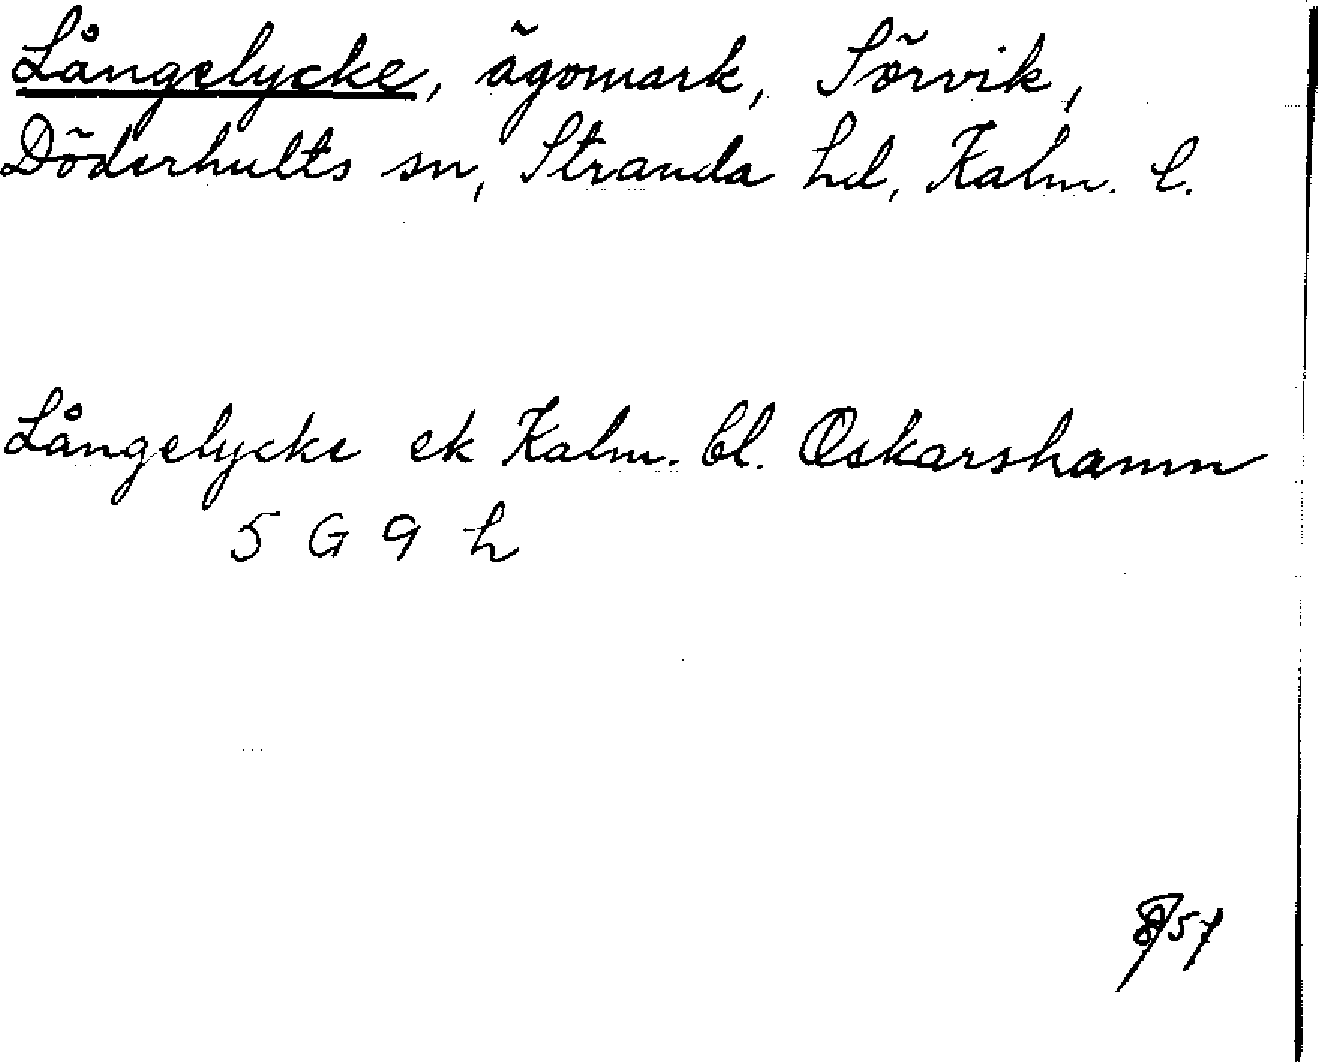 Långelycke, ägomark, Sörvik,
Döderhults sn, Stranda hd, Kalm. l.
Långelycke ek Kalm. bl. Oskarshamn
5 G 9 h
57